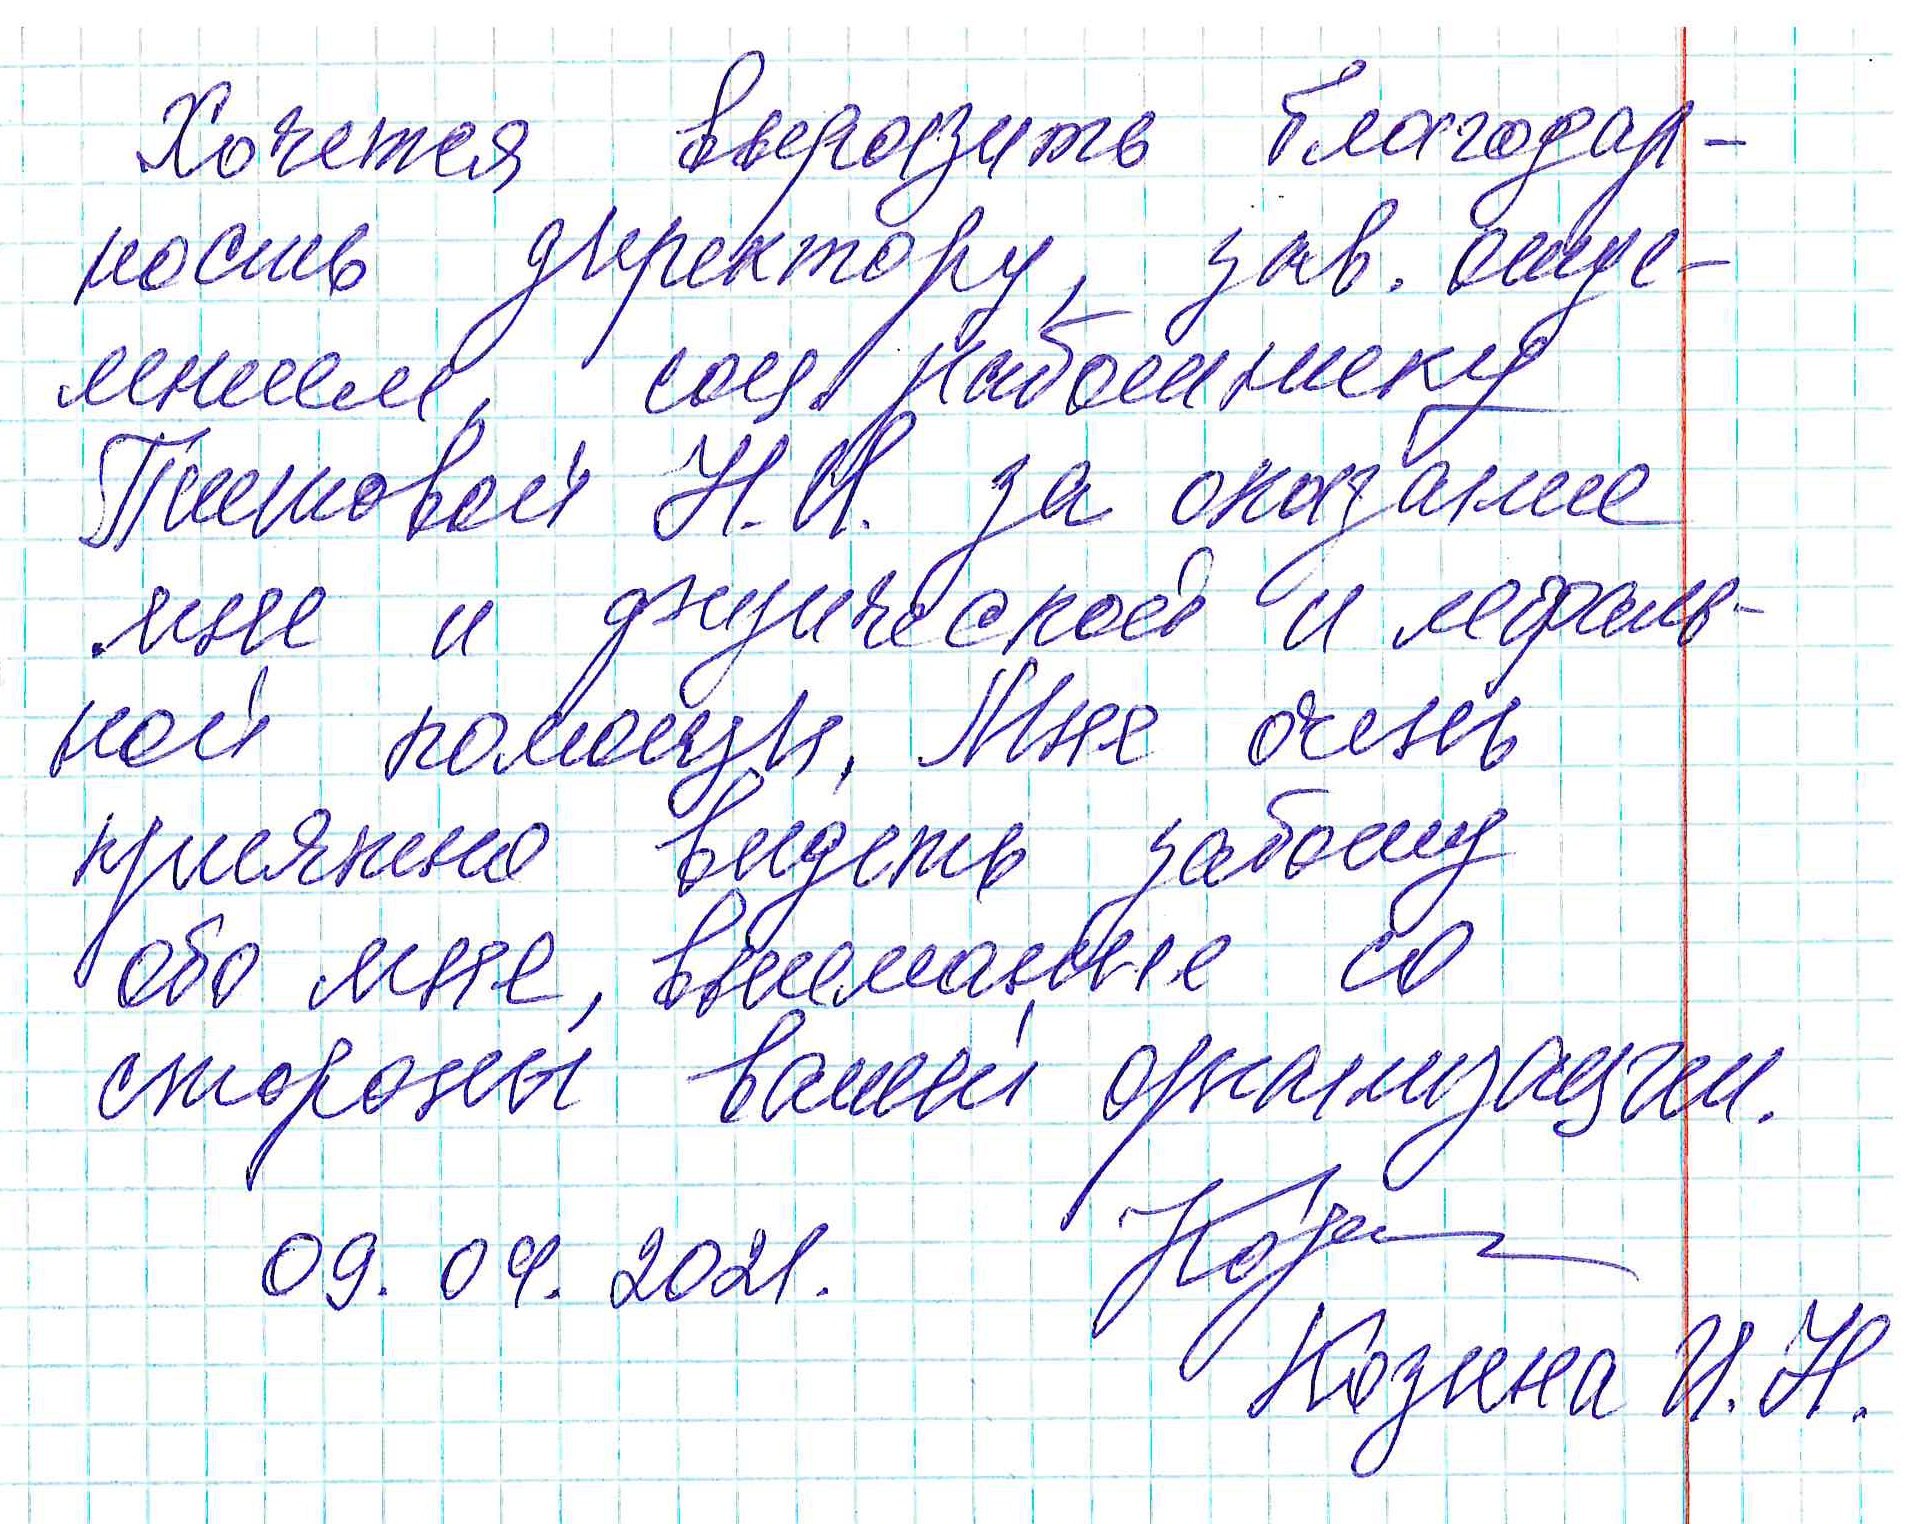 Хочется выразить благодар-
ность директору, зав. отде-
лением, соц. работнику
Н.И. за оказание
мне и физической и мораль-
ной помощи. Мне очень
приятно видеть заботу
обо мне, внимание со
стороны вашей организации.
09.04.2021.
Козина И.Н.